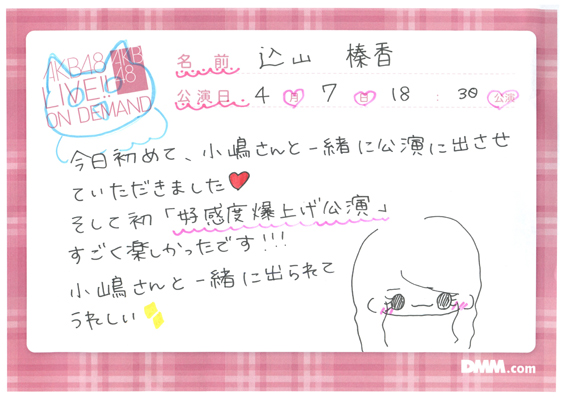 AKB48
AKB
48
LIVE!!
ON DEMAND
名前 込山 榛香
公演日 4 月 7 日 18 : 30 公演
今日初めて、小嶋さんと一緒に公演に出させ
ていただきました
そして初「好感度爆上げ公演」
すごく楽しかったです!!!
小嶋さんと一緒に出られて
うれしい
DMM.com